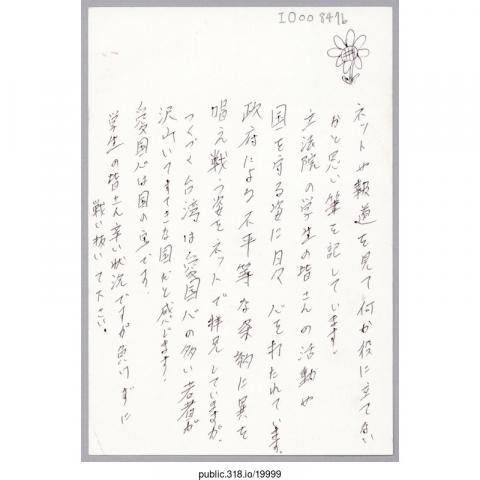 IO008476
ネットや報道を見て何か役に立てない
かと思い筆を記しています。
立法院の学生の皆さんの活動や
国を守る姿に日々心を打たれています。
政府による不平等な条約に異を
唱え戦う姿をネットで拝見していますが、
つくづく台湾は愛国心の多い若者が
沢山いてすてきな国だと感じます。
愛国心は国の宝です。
学生の皆さん辛い状況ですが負けずに
戦い抜いて下さい。
public.318.io/19999